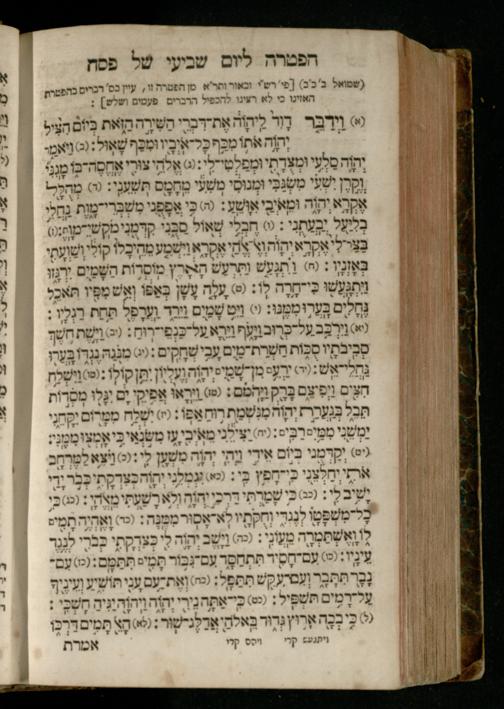 הפטרה ליום שביעי של פסח
(שמואל ב' כ"ב) [פי' רש"י ובאור ותר"א מן הפטרה זו, עיין בס' דברים בהפטרת
האזינו כי לא רצינו להכפיל הדברים פעמים ושלש] :
(א) וַיְדַבֵּר דָּוִד לַיהוָה אֶת־דִּבְרֵי הַשִּׁירָה הַזֹּאת בְּיוֹם הִצִּיל
יְהוָה אֹתוֹ מִכַּף כָּל־אֹיְבָיו וּמִכַּף שָׁאוּל : (ב) וַיֹּאמַר
יְהוָה סַלְעִי וּמְצֻדָתִי וּמְפַלְטִי־לִי : (ג) אֱלֹהֵי צוּרִי אֶחֱסֶה־בּוֹ מָגִנִּי
וְקֶרֶן יִשְׁעִי מִשְׂגַּבִּי וּמְנוּסִי מֹשִׁעִי מֵחָמָס תֹּשִׁעֵנִי : (ד) מְהֻלָּל
אֶקְרָא יְהוָה וּמֵאֹיְבַי אִוָּשֵׁעַ : (ה) כִּי אֲפָפֻנִי מִשְׁבְּרֵי־מָוֶת נַחֲלֵי
בְלִיַּעַל יְבַעֲתֻנִי : (ו) חֶבְלֵי שְׁאוֹל סַבֻּנִי קִדְּמֻנִי מֹקְשֵׁי־מָוֶת : (ז)
בַּצַּר־לִי אֶקְרָא יְהוָה וְאֶל־אֱלֹהַי אֶקְרָא וַיִּשְׁמַע מֵהֵיכָלוֹ קוֹלִי וְשַׁוְעָתִי
בְּאָזְנָיו : (ח) וַתִּגְעַשׁ וַתִּרְעַשׁ הָאָרֶץ מוֹסְדוֹת הַשָּׁמַיִם יִרְגָּזוּ
וַיִּתְגָּעֲשׁוּ כִּי־חָרָה לוֹ : (ט) עָלָה עָשָׁן בְּאַפּוֹ וְאֵשׁ מִפִּיו תֹּאכֵל
גֶּחָלִים בָּעֲרוּ מִמֶּנּוּ : (י) וַיֵּט שָׁמַיִם וַיֵּרַד וַעֲרָפֶל תַּחַת רַגְלָיו :
(יא) וַיִּרְכַּב עַל־כְּרוּב וַיָּעֹף וַיֵּרָא עַל־כַּנְפֵי־רוּחַ : (יב) וַיָּשֶׁת חֹשֶׁךְ
סְבִיבֹתָיו סֻכּוֹת חַשְׁרַת־מַיִם עָבֵי שְׁחָקִים : (יג) מִנֹּגַהּ נֶגְדּוֹ בָּעֲרוּ
גַּחֲלֵי־אֵשׁ : (יד) יַרְעֵם מִן־שָׁמַיִם יְהוָה וְעֶלְיוֹן יִתֵּן קוֹלוֹ : (טו) וַיִּשְׁלַח
חִצִּים וַיְפִיצֵם בָּרָק וַיָּהֹמֵם : (טז) וַיֵּרָאוּ אֲפִיקֵי יָם יִגָּלוּ מֹסְדוֹת
תֵּבֵל בְּגַעֲרַת יְהוָה מִנִּשְׁמַת רוּחַ אַפּוֹ : (יז) יִשְׁלַח מִמָּרוֹם יִקָּחֵנִי
יַמְשֵׁנִי מִמַּיִם רַבִּים : (יח) יַצִּילֵנִי מֵאֹיְבִי עָז מִשֹּׂנְאַי כִּי אָמְצוּ מִמֶּנִּי :
(יט) יְקַדְּמֻנִי בְּיוֹם אֵידִי וַיְהִי יְהוָה מִשְׁעָן לִי : (כ) וַיֹּצֵא לַמֶּרְחָב
אֹתִי יְחַלְּצֵנִי כִּי־חָפֵץ בִּי : (כא) יִגְמְלֵנִי יְהוָה כְּצִדְקָתִי כְּבֹר יָדַי
יָשִׁיב לִי : (כב) כִּי שָׁמַרְתִּי דַּרְכֵי יְהוָה וְלֹא רָשַׁעְתִּי מֵאֱלֹהָי : (כג) כִּי
כָל־מִשְׁפָּטָו לְנֶגְדִּי וְחֻקֹּתָיו לֹא־אָסוּר מִמֶּנָּה : (כד) וָאֶהְיֶה תָמִים
לוֹ וָאֶשְׁתַּמְּרָה מֵעֲוֹנִי : (כה) וַיָּשֶׁב יְהוָה לִי כְּצִדְקָתִי כְּבֹרִי לְנֶגֶד
עֵינָיו : (כו) עִם־חָסִיד תִּתְחַסָּד עִם־גִּבּוֹר תָּמִים תִּתַּמָּם : (כז) עִם־
נָבָר תִּתָּבָר וְעִם־עִקֵּשׁ תִּתַּפָּל : (כח) וְאֶת־עַם עָנִי תּוֹשִׁיעַ וְעֵינֶיךָ
עַל־רָמִים תַּשְׁפִּיל : (כט) כִּי־אַתָּה נֵירִי יְהוָה וַיהוָה יַגִּיהַּ חָשְׁכִּי :
(ל) כִּי בְכָה אָרוּץ גְּדוּד בֵּאלֹהַי אֲדַלֶּג־שׁוּר : (לא) הָאֵל תָּמִים דַּרְכּוֹ
ויתגעש קרי
אמרת